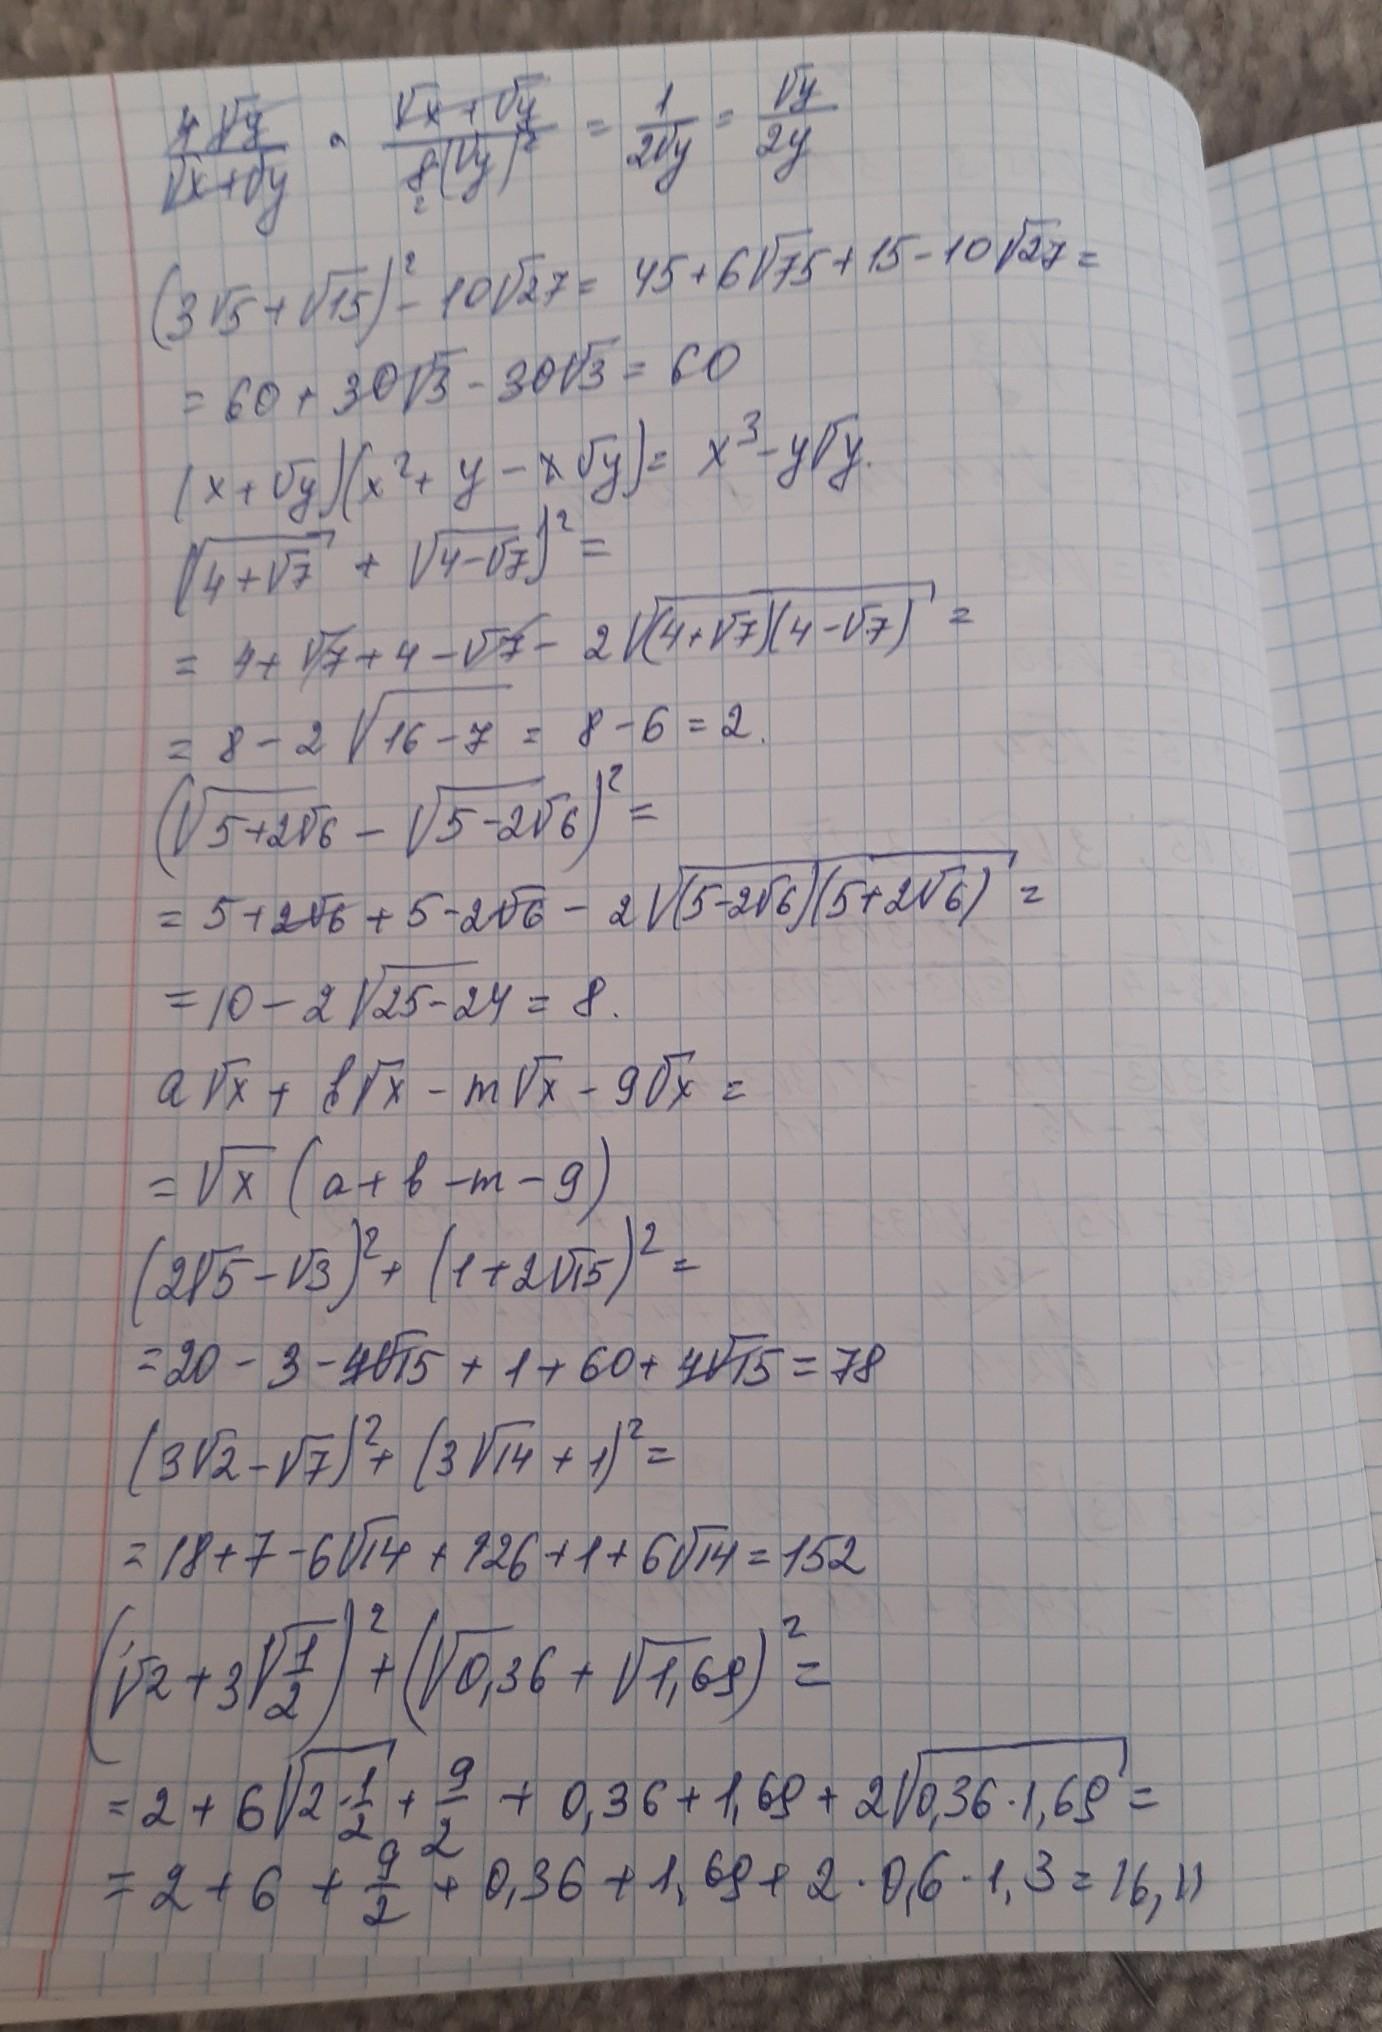 4√y/(√x+√y) · (√x+√y)/(8(√y)²) = 1/(2√y) = √y/(2y)
2
(3√5+√15)²-10√27= 45+6√75+15-10√27=
=60+30√3-30√3=60
(x+√y)(x²+y-x√y)= x³-y√y.
(√(4+√7) + √(4-√7))²=
= 4+√7+4-√7- 2√((4+√7)(4-√7)) =
= 8-2√(16-7) = 8-6=2.
(√(5+2√6) - √(5-2√6))²=
= 5+2√6+5-2√6-2√((5-2√6)(5+2√6))=
=10-2√(25-24)=8.
a√x+ b√x-m√x-9√x=
=√x (a+b-m-9)
(2√5-√3)²+(1+2√15)²=
=20-3-4√15+1+60+4√15=78
(3√2-√7)²+(3√14+1)²=
=18+7-6√14+126+1+6√14=152
(√2+3√(1/2))²+(√0,36+√1,69)²=
=2+6√(2·1/2)+9/2+0,36+1,69+2√(0,36·1,69)=
=2+6+9/2+0,36+1,69+2·0,6·1,3=16,11